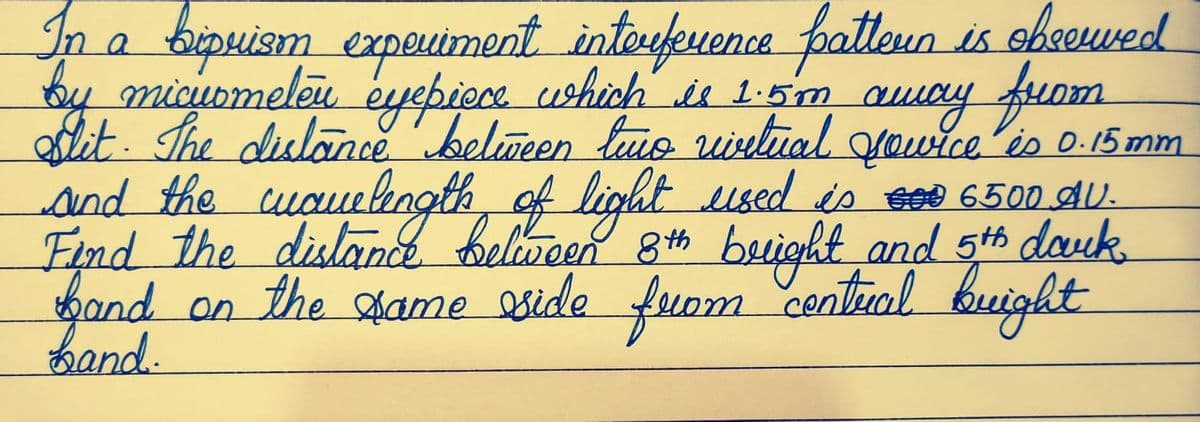 In a biprism experiment interference pattern is observed
by micrometer eyepiece which is 1.5m away from
slit. The distance between two virtual source is 0.15mm
and the wavelength of light used is 600 6500 AU.
Find the distance between 8th bright and 5th dark
band on the same side from central bright
band.